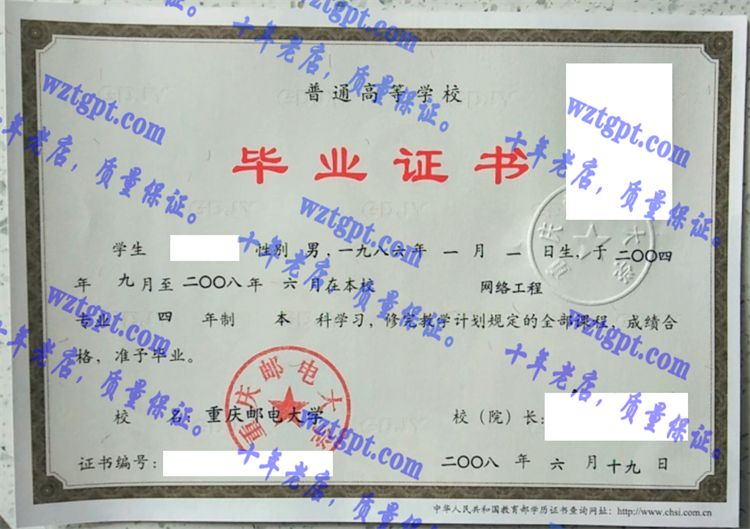 普通高等学校
毕业证书
学生 性别 男，一九八六年 一 月 一 日生，于二〇〇四
年 九 月至二〇〇八年 六 月在本校 网络工程
专业 四 年制 本 科学习，修完教学计划规定的全部课程，成绩合
格，准予毕业。
校 名：重庆邮电大学 校（院）长：
证书编号： 二〇〇八 年 六 月 十九 日
中华人民共和国教育部学历证书查询网址：http://www.chsi.com.cn
重庆邮电大学
wztgpt.com
十年老店，质量保证。
wztgpt.com
十年老店，质量保证。
wztgpt.com
十年老店，质量保证。
wztgpt.com
十年老店，质量保证。
wztgpt.com
十年老店，质量保证。
wztgpt.com
十年老店，质量保证。
wztgpt.com
十年老店，质量保证。
wztgpt.com
十年老店，质量保证。